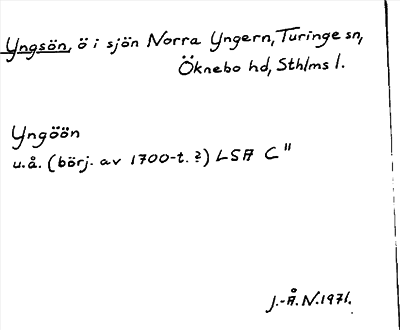 Yngsön, ö i sjön Norra Yngern, Turinge sn,
Öknebo hd, Sthlms l.
Yngöön
u.å. (börj. av 1700-t. ?) LSA C"
J.-Å. N. 1971.